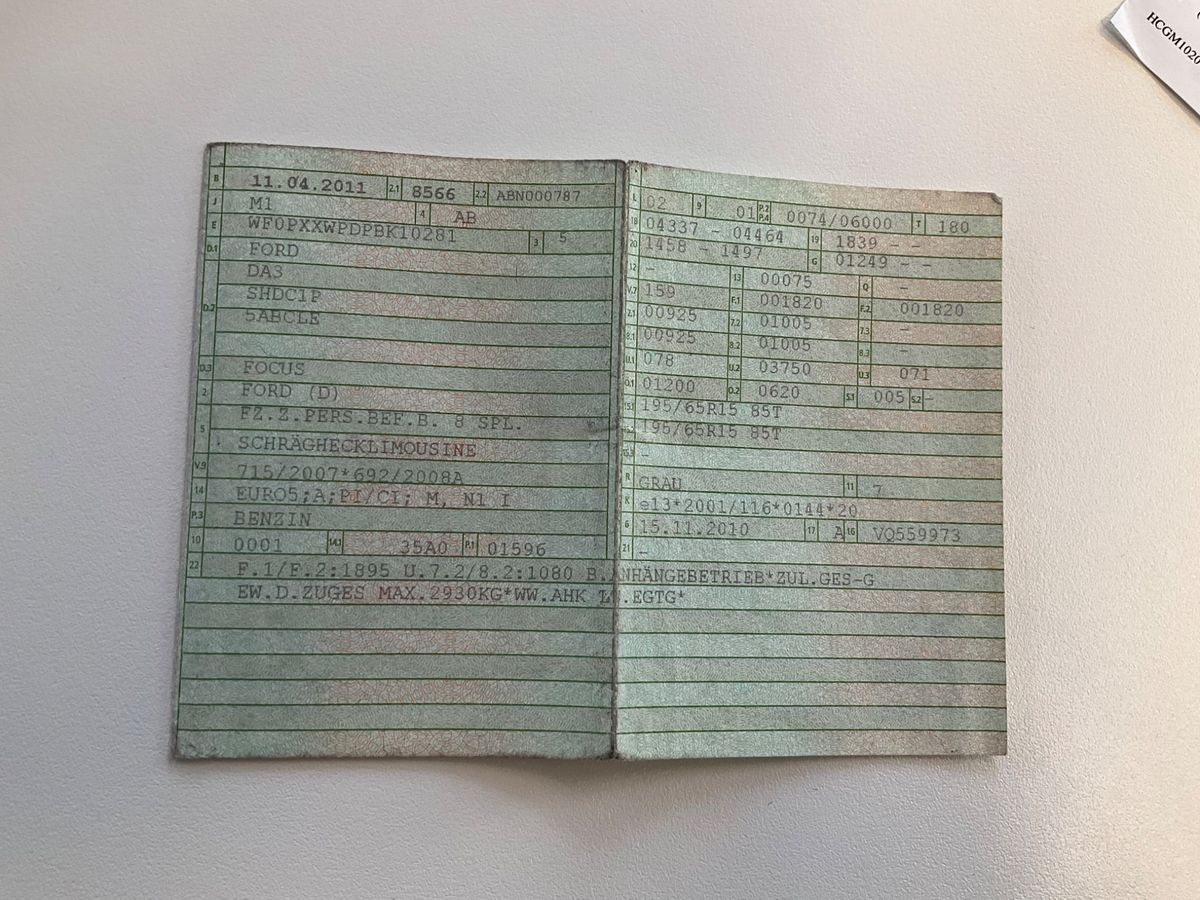 B 11.04.2011 2.1 8566 2.2 ABN000787
J M1 4 AB
E WF0PXXWPDPBK10281 3 5
D.1 FORD
DA3
D.2 SHDC1P
5ABCLE
D.3 FOCUS
2 FORD (D)
FZ.Z.PERS.BEF.B. 8 SPL.
5 SCHRÄGHECKLIMOUSINE
V.9 715/2007*692/2008A
14 EURO5;A;PI/CI; M, N1 I
P.3 BENZIN
10 0001 14.1 35A0 P.1 01596
L 02 9 01 P.2 P.4 0074/06000 T 180
18 04337 - 04464 19 1839 - -
20 1458 - 1497 G 01249 - -
12 - 13 00075 Q -
V.7 159 F.1 001820 F.2 001820
7.1 00925 7.2 01005 7.3 -
8.1 00925 8.2 01005 8.3 -
U.1 078 U.2 03750 U.3 071
O.1 01200 O.2 0620 S.1 005 S.2 -
15.1 195/65R15 85T
195/65R15 85T
15.3 -
R GRAU 11 7
K e13*2001/116*0144*20
6 15.11.2010 17 A 16 VQ559973
21 -
22 F.1/F.2:1895 U.7.2/8.2:1080 B.ANHÄNGEBETRIEB*ZUL.GES-G
EW.D.ZUGES MAX.2930KG*WW.AHK .EGTG*
HCGM1020